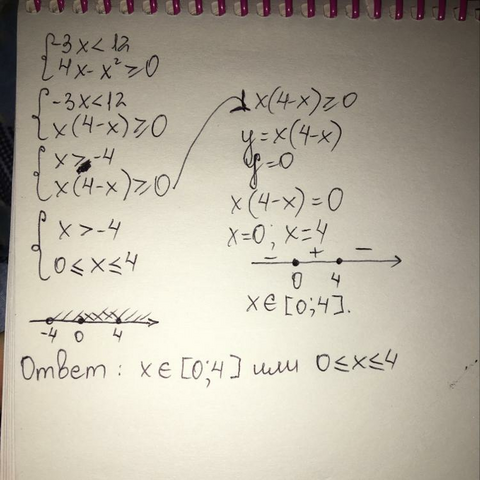 {-3x < 12
4x - x² ≥ 0
{-3x < 12
x(4-x) ≥ 0
{x > -4
x(4-x) ≥ 0
{x > -4
0 ≤ x ≤ 4
-4 0 4
1 x(4-x) ≥ 0
y = x(4-x)
y = 0
x(4-x) = 0
x=0; x=4
- + -
0 4
x ∈ [0;4].
Ответ: x ∈ [0;4] или 0 ≤ x ≤ 4